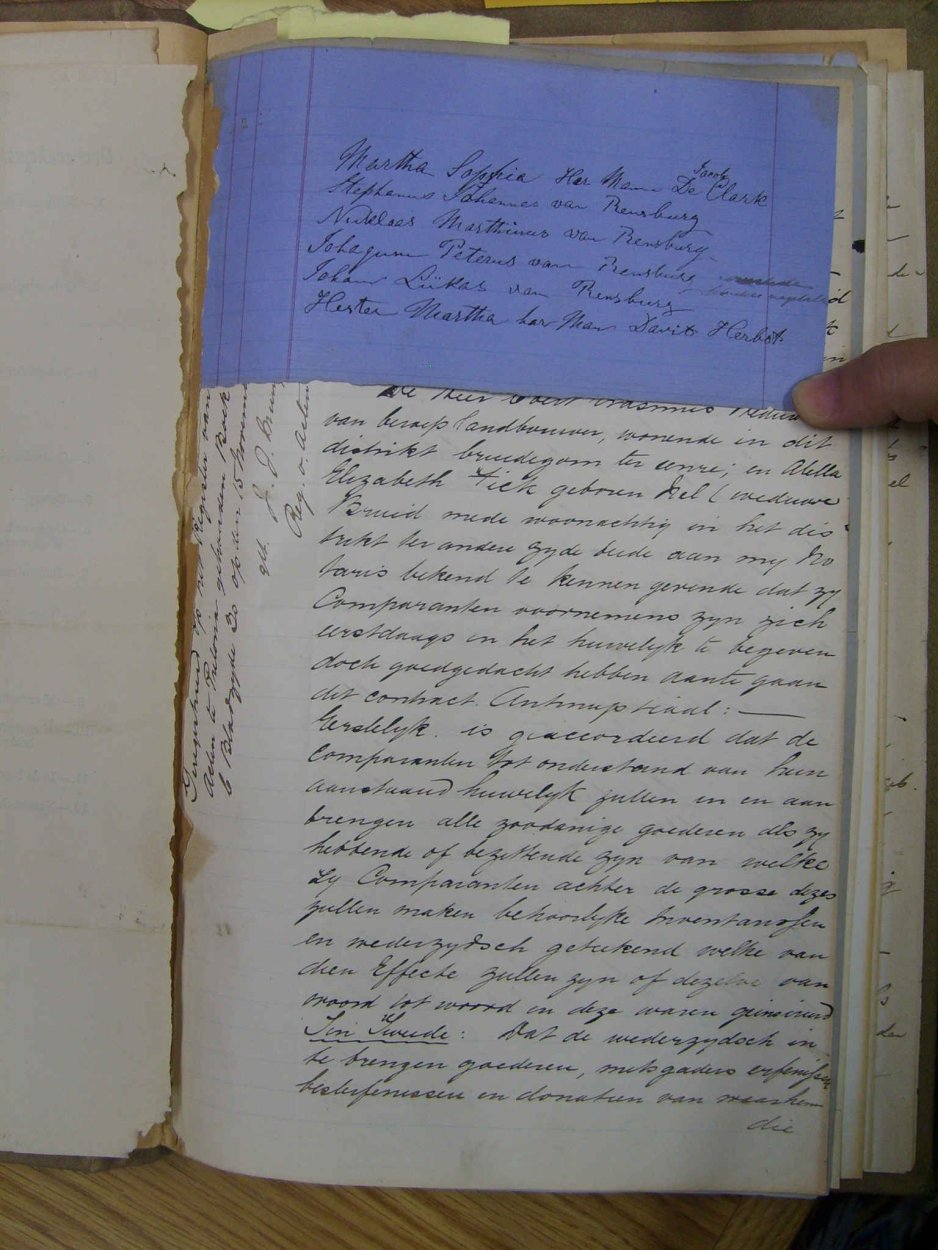 Martha Sophia Her Mann Jacob De Clark
Stephanus Johannes van Rensburg
Nicklaas Marthinus van Rensburg
Johagum Peterus van Rensburg
Johan Lükas van Rensburg
Hester Martha har Man Davit Herbst
De Heer Evert Erasmus
van beroep landbouwer, wonende in dit
distrikt bruidegom ter eenre; en Abella
Elizabeth Fick geboren Nel (weduwe
Bruid mede woonachtig in het dis
trikt ter andere zyde beide aan my No
taris bekend te kennen gevende dat zy
Comparanten voornemens zyn zich
eerstdaags in het huwelyk te begeven
doch goedgedacht hebben aante gaan
dit contract Antinuptiaal: —
Eerstelyk. is geaccordeerd dat de
Comparanten tot onderstand van hun
aanstaand huwelyk zullen in en aan
brengen alle zoodanige goederen als zy
hebbende of bezittende zyn van welke
Zy Comparanten achter de grosse dezes
zullen maken behoorlyke Inventarissen
en wederzydsch getekend welke van
dien Effecte zullen zyn of dezelve van
woord tot woord in deze waren geinsereerd
Ten Tweede: Dat de wederzydsch in
te brengen goederen, mitsgaders erfenissen
besterfenissen en donatien van waarhem
die
op het Register van
Acten te Pretoria gehouden Boek
6 Bladzyde 20 op den 15
get. J. J.
Reg. v. Acten